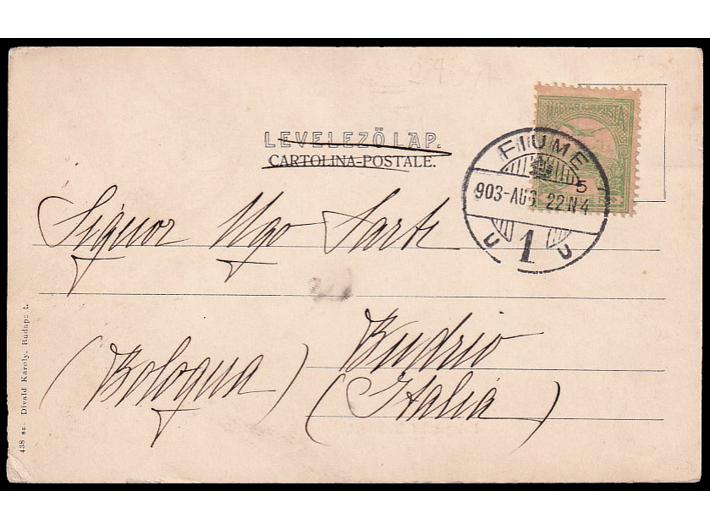 LEVELEZŐ LAP.
CARTOLINA-POSTALE.
MAGYAR KIR. POSTA
5
FIUME
903-AUG. 22 N 4
U 1 U
Signor Ugo Sarti
Budrio
(Bologna) (Italia)
438 sz. Divald Károly, Budapest.